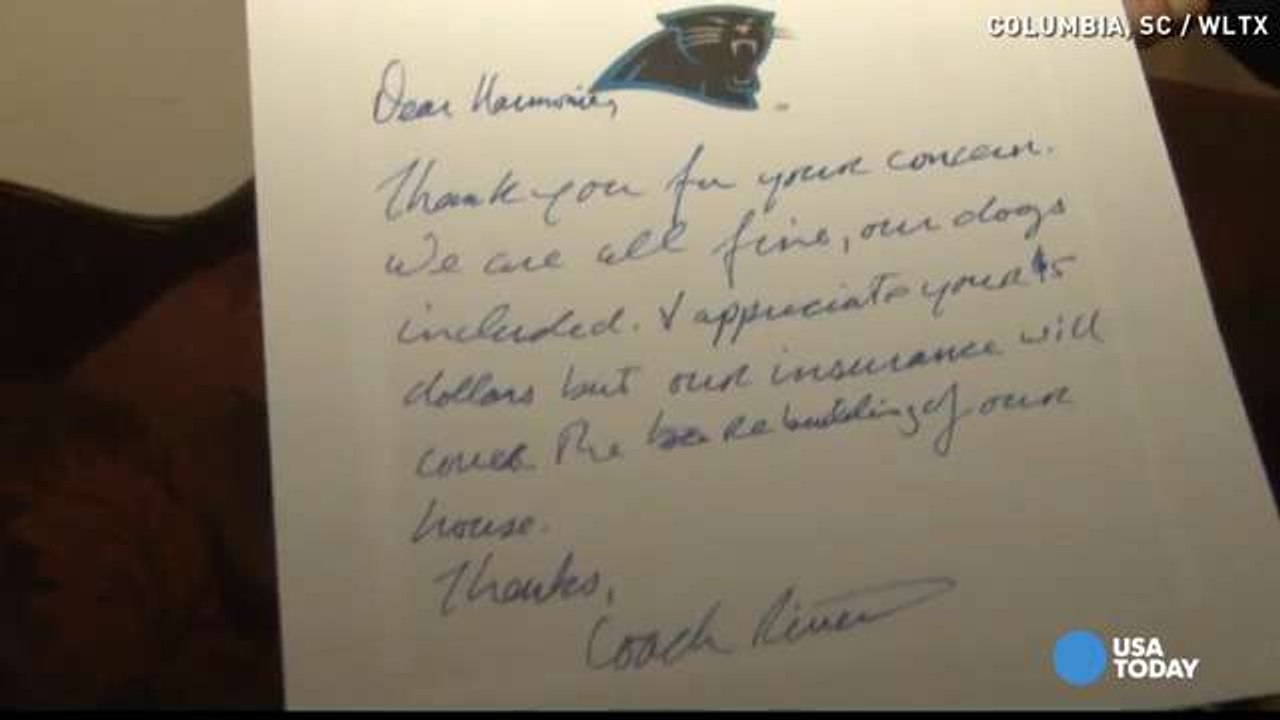 COLUMBIA, SC / WLTX
Dear Harmonie,
Thank you for your concern.
We are all fine, our dogs
included. I appreciate your $5
dollars but our insurance will
cover the rebuilding of our
house.
Thanks,
Coach Rivera
USA
TODAY